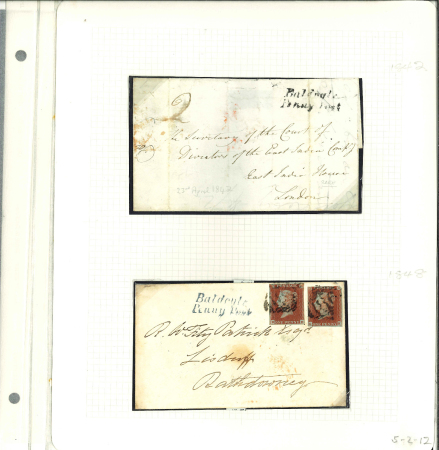 1842
Baldoyle
Penny Post
2
The Secretary of the Court of
Directors of the East India Compy
East India House
London
1848
Baldoyle
Penny Post
R. W. Fitz Patrick Esqr
Lisduff
Rathdowney
5-2-12